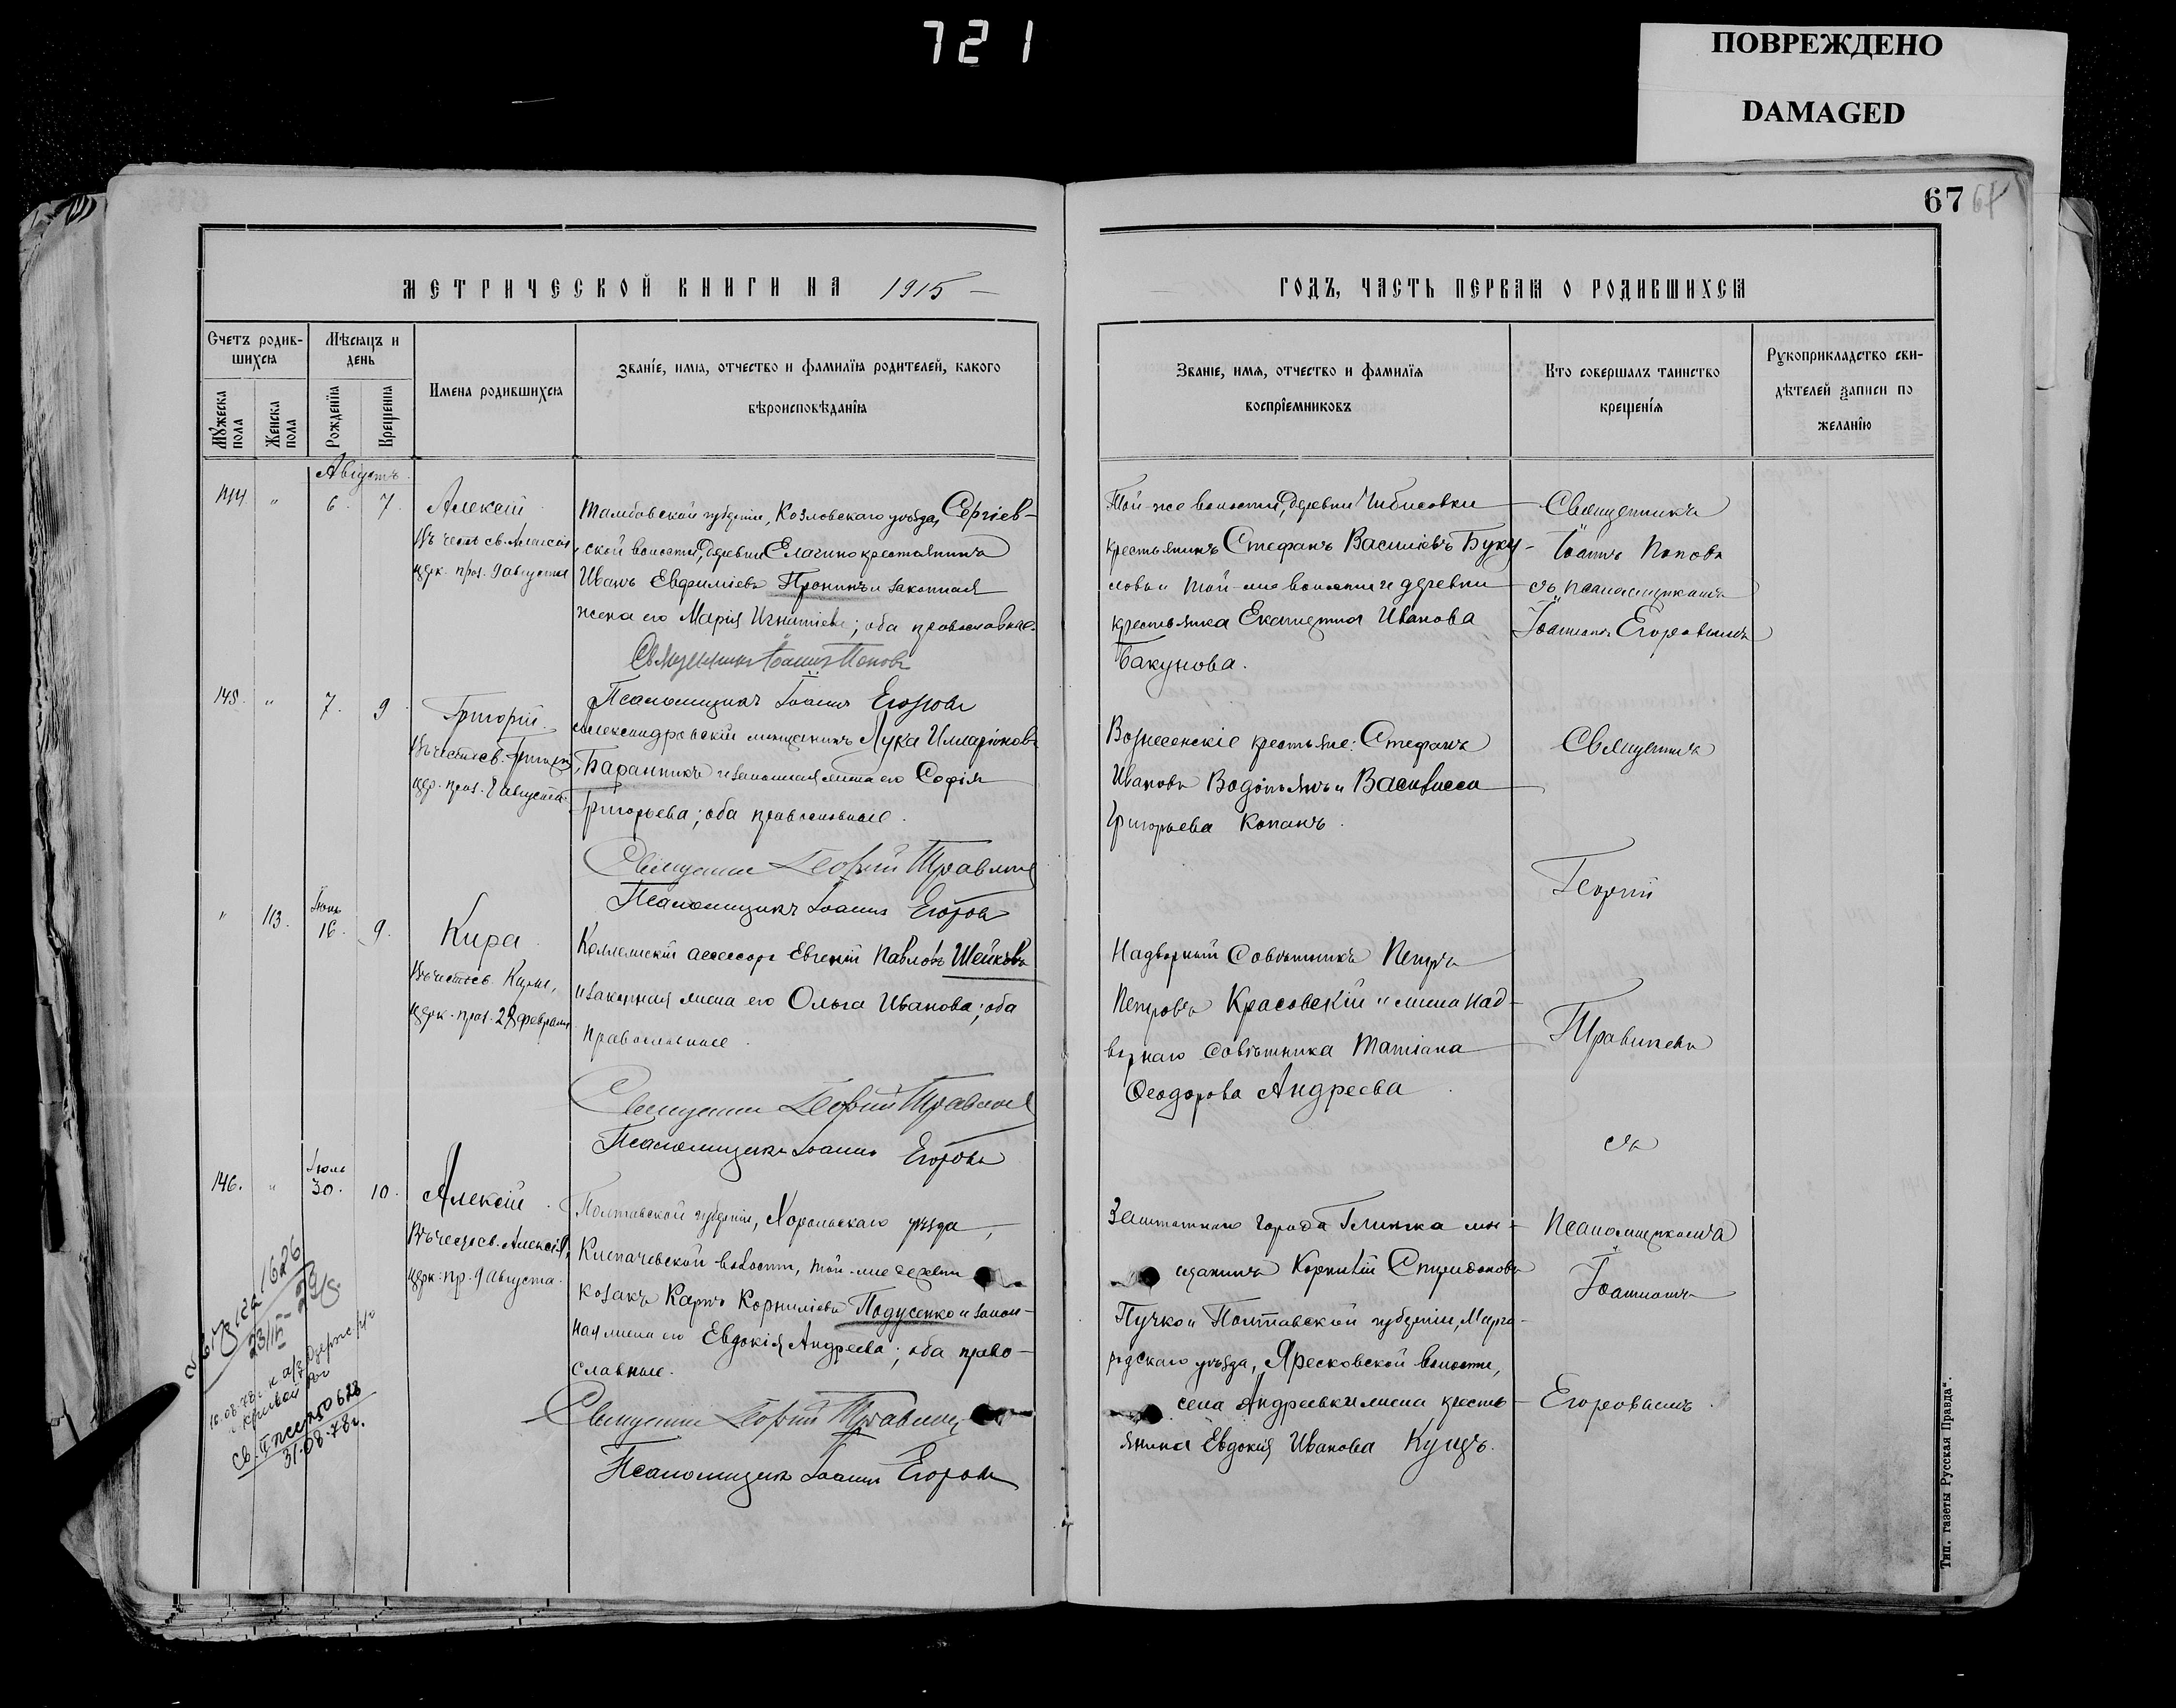 721
ПОВРЕЖДЕНО
DAMAGED
67
МЕТРИЧЕСКОЙ КНИГИ НА 1915
ГОДЪ, ЧАСТЬ ПЕРВАЯ О РОДИВШИХСЯ
Счетъ родив-
шихся
Мѣсяцъ и
день
Мужеска пола
Женска пола
Рожденія
Крещенія
Имена родившихся
Званіе, имя, отчество и фамилія родителей, какого
вѣроисповѣданія
Званіе, имя, отчество и фамилія
воспріемниковъ
Кто совершалъ таинство
крещенія
Рукоприкладство сви-
дѣтелей записи по
желанію
Августъ
144 " 6. 7. Алексій
Въ честь св. Алексія
церк. праз. 9 августа
Тамбовской губерніи, Козловскаго уѣзда, Сергіев-
ской волости, деревни Елагино крестьянинъ
Иванъ Евфиміевъ Пронинъ и законная
жена его Марія Игнатіева; оба православные.
Священникъ Іоаннъ Поповъ
Псаломщикъ Іоаннъ Егоровъ
Той-же волости, деревни Чибисовки
крестьянинъ Стефанъ Василіевъ Буку-
совъ и той-же волости и деревни
крестьянка Екатерина Иванова
Бакунова.
Священникъ
Іоаннъ Поповъ
съ псаломщикомъ
Іоанномъ Егоровымъ
145. " 7. 9 Григорій.
Въ честь св. Григорія,
цер. праз. 8 августа.
Александровскій мѣщанинъ Лука Илларіоновъ
Баранникъ и законная жена его Софія
Григорьева; оба православные.
Священникъ Георгій Травинъ
Псаломщикъ Іоаннъ Егоровъ
Вознесенскіе крестьяне: Стефанъ
Ивановъ Водопьянъ и Василисса
Григорьева Копанъ.
Священникъ
Георгій
" 113. Іюнь 16. 9. Кира
Въ честь св. Киры,
церк. праз. 28 февраля
Коллежскій ассесоръ Евгеній Павловъ Шейковъ
и законная жена его Ольга Иванова; оба
православные.
Священникъ Георгій
Псаломщикъ Іоаннъ Егоровъ
Надворный Совѣтникъ Петръ
Петровъ Красовскій и жена над-
ворнаго Совѣтника Татіана
Ѳеодорова Андреева
съ
146. " Іюль 30. 10. Алексій
Въ честь св. Алексія,
церк. пр. 9 августа.
Полтавской губерніи, Хорольскаго уѣзда,
волости, той-же деревни
козакъ Карпъ Корниліевъ Подусенко и закон-
ная жена его Евдокія Андреева; оба право-
славные.
Священникъ Георгій
Псаломщикъ Іоаннъ Егоровъ
Заштатнаго города Глинска мѣ-
щанинъ Корнилій Спиридоновъ
Пучко и Полтавской губерніи, Мирго-
родскаго уѣзда, Яресковской волости,
села Андреевки жена кресть-
янина Евдокія Иванова Куцъ.
Псаломщикомъ
Іоанномъ
Егоровымъ.
1626
16.08.78г.
Кривой Рог
628
31.08.78г.
Тип. газеты Русская Правда".